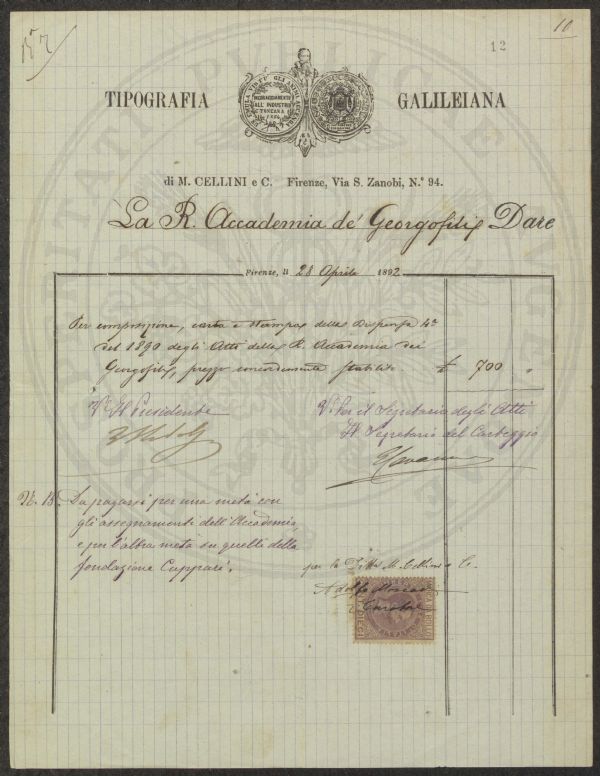 10
12
TIPOGRAFIA GALILEIANA
di M. CELLINI e C. Firenze, Via S. Zanobi, N.° 94.
La R. Accademia de' Georgofili Dare
Firenze, li 28 Aprile 1892
Per composizione, carta e stampa della Dispensa 4ª
del 1890 degli Atti della R. Accademia dei
Georgofili, prezzo concordemente stabilito £ 700 "
V° Il Presidente
V° Per il Segretario degli Atti
Il Segretario del Carteggio
N. B. Da pagarsi per una metà con
gli assegnamenti dell'Accademia,
e per l'altra metà su quelli della
fondazione Cuppari.
per la Ditta M. Cellini e C.
Adolfo